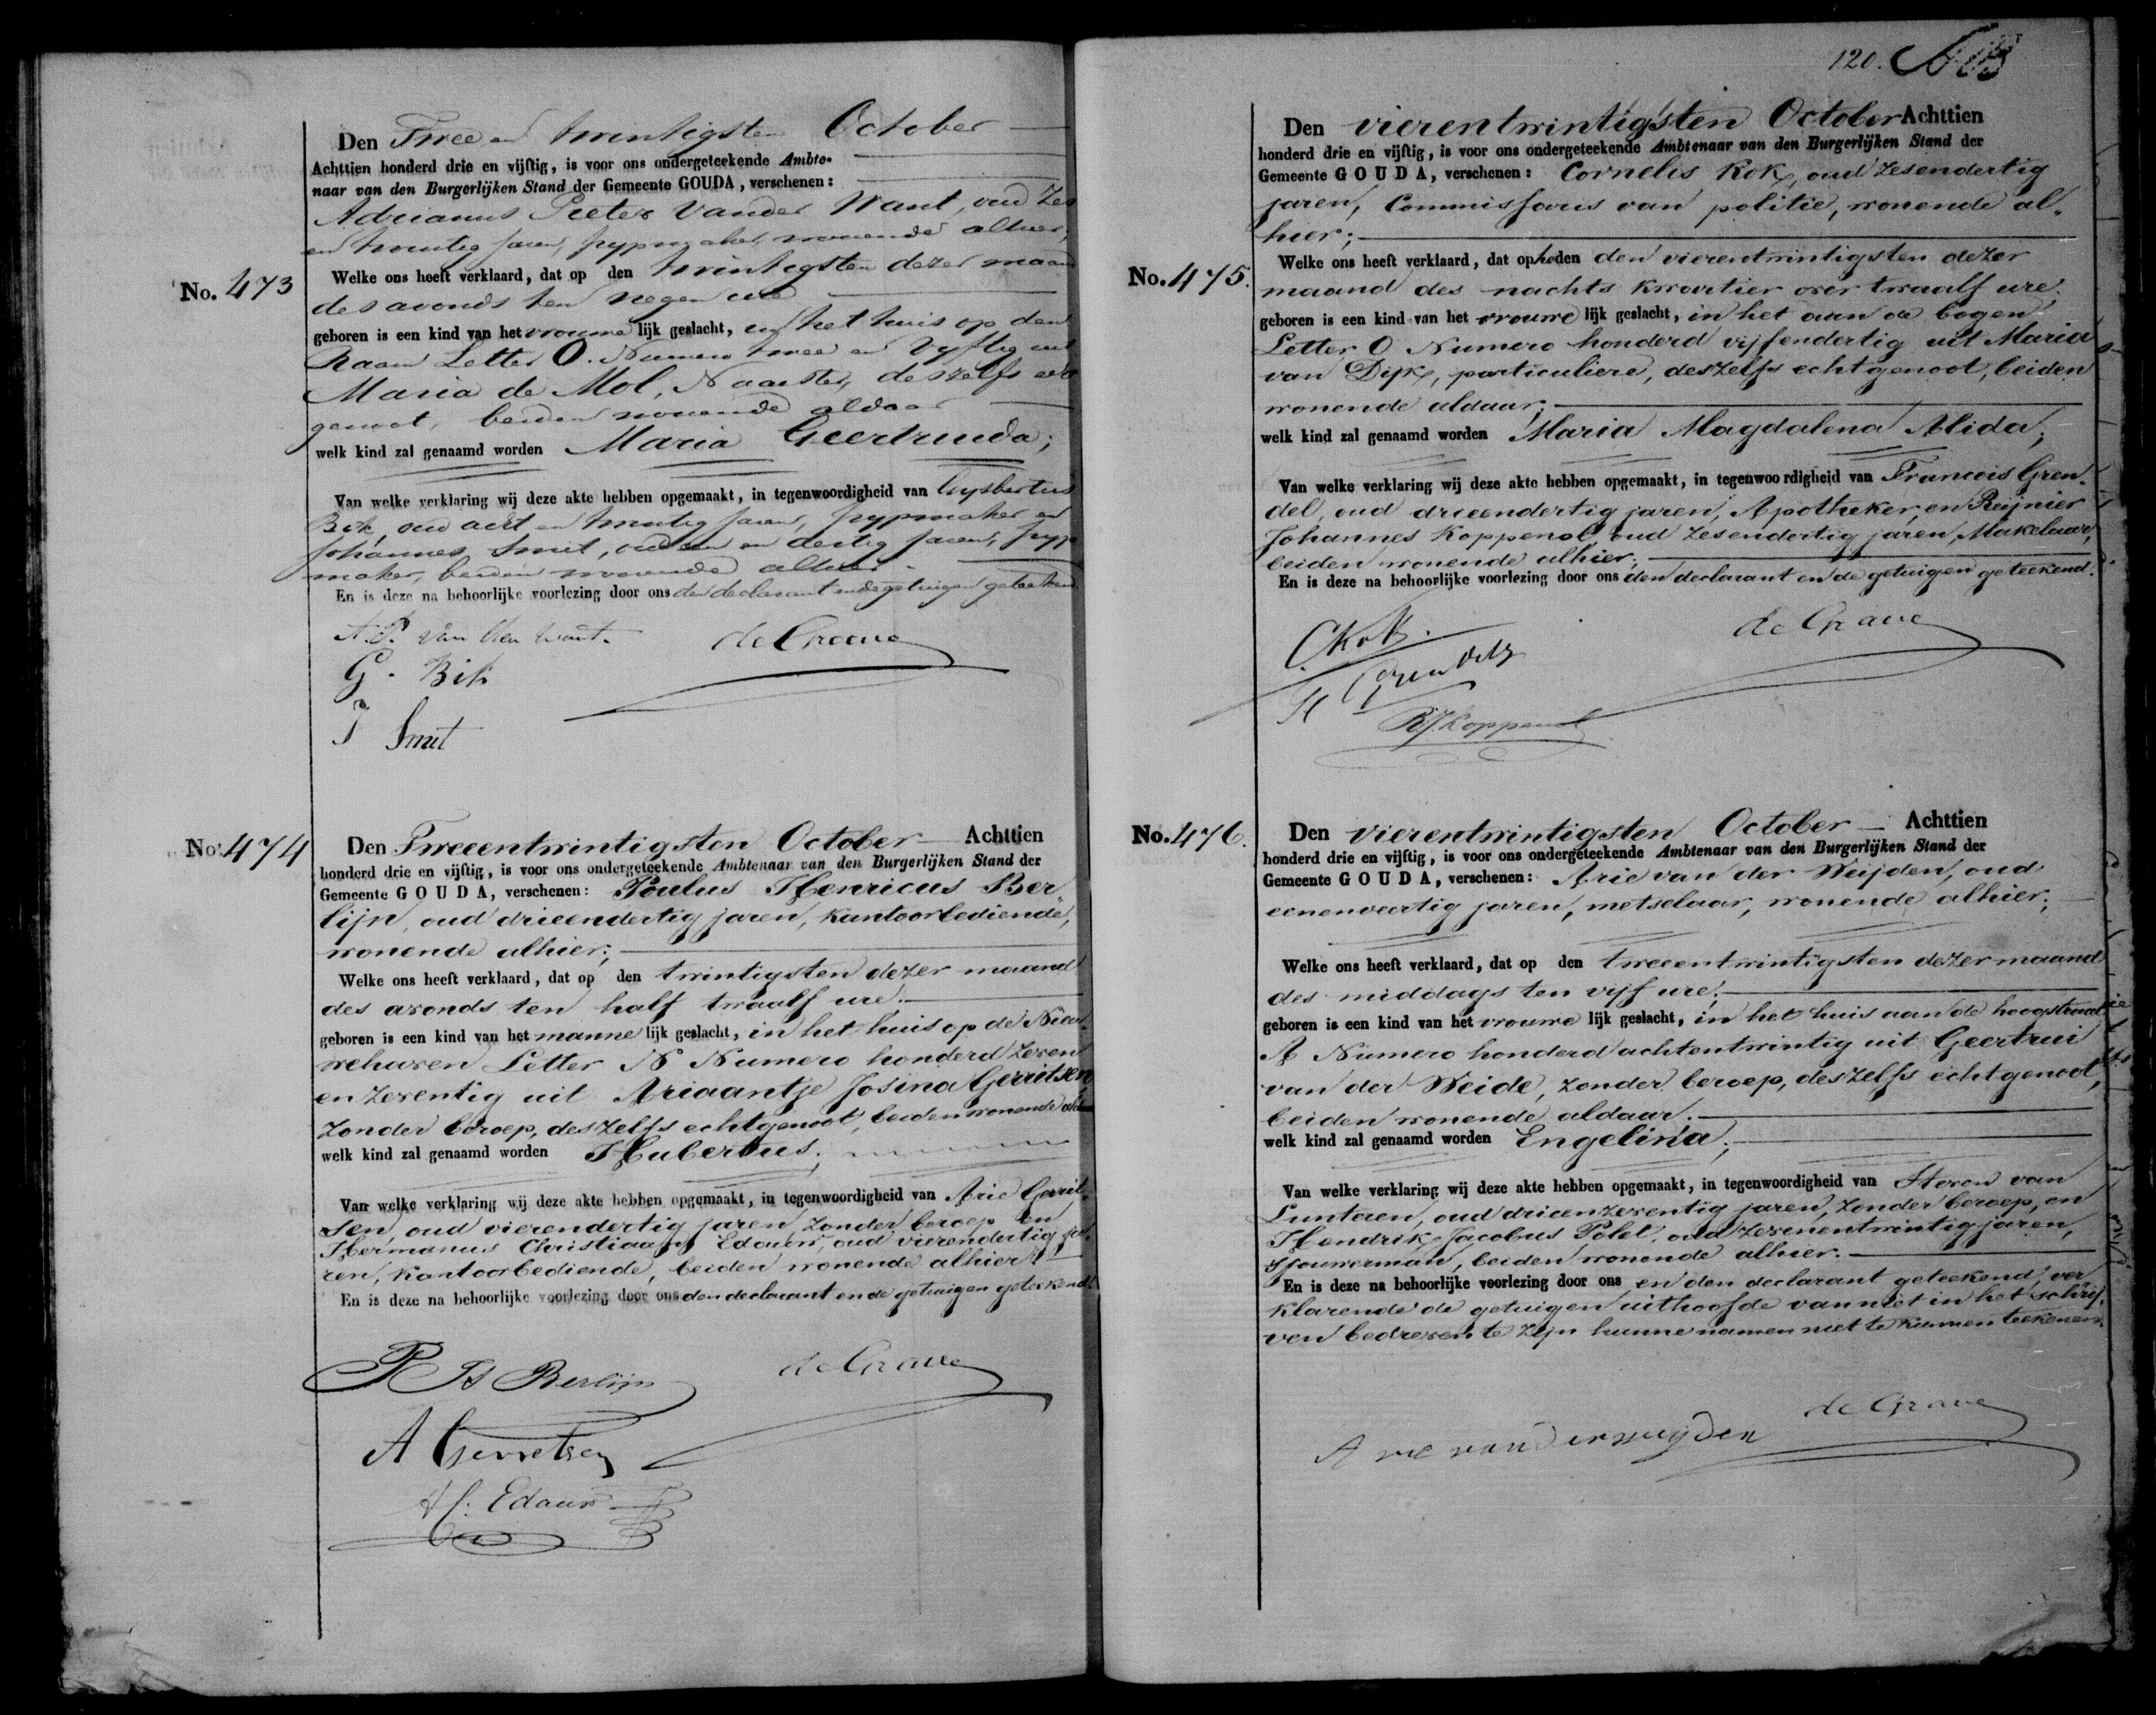 Den Twee en twintigsten October
Achttien honderd drie en vijftig, is voor ons ondergeteekende Ambte-
naar van den Burgerlijken Stand der Gemeente GOUDA, verschenen:
Adrianus Pieter van der Want, oud Zes
en twintig jaren, pypmaker, wonende alhier,
No. 473
Welke ons heeft verklaard, dat op den twintigsten dezer maand
des avonds ten negen ure
geboren is een kind van het vrouwelijk geslacht, in het huis op den
Raam Letter O. Numero twee en vyftig uit
Maria de Mol, Naaister, deszelfs echt
genoot, beiden wonende aldaar
welk kind zal genaamd worden Maria Geertruida;
Van welke verklaring wij deze akte hebben opgemaakt, in tegenwoordigheid van Gysbertus
Bik, oud acht en twintig jaren, pypmaker en
Johannes Smit, oud een en dertig jaren, pyp
maker, beiden wonende alhier
En is deze na behoorlijke voorlezing door ons den declarant en de getuigen geteekend
A.P. van der Want. de Grave
G. Bik
J Smit
No. 474
Den Tweeentwintigsten October Achttien
honderd drie en vijftig, is voor ons ondergeteekende Ambtenaar van den Burgerlijken Stand der
Gemeente GOUDA, verschenen: Poulus Henricus Ber
lijn, oud drieendertig jaren, kantoorbediende,
wonende alhier;
Welke ons heeft verklaard, dat op den twintigsten dezer maand
des avonds ten half twaalf ure.
geboren is een kind van het mannelijk geslacht, in het huis op de Nieu-
wehaven Letter N Numero honderd zeven
en zeventig uit Ariaantje Josina Gerritsen,
zonder beroep, deszelfs echtgenoot, beiden wonende aldaar
welk kind zal genaamd worden Hubertus;
Van welke verklaring wij deze akte hebben opgemaakt, in tegenwoordigheid van Arie Gerrit-
sen, oud vierendertig jaren, zonder beroep en
Hermanus Christiaan Edauw, oud vierendertig ja-
ren, kantoorbediende, beiden wonende alhier.
En is deze na behoorlijke voorlezing door ons den declarant en de getuigen geteekend.
P H Berlijn de Grave
A Gerretsen
H C. Edauw
120.
Den vierentwintigsten October Achttien
honderd drie en vijftig, is voor ons ondergeteekende Ambtenaar van den Burgerlijken Stand der
Gemeente GOUDA, verschenen: Cornelis Kok, oud zesendertig
jaren, Commissaris van politie, wonende al-
hier;
No. 475.
Welke ons heeft verklaard, dat op heden den vierentwintigsten dezer
maand des nachts kwartier over twaalf ure;
geboren is een kind van het vrouwelijk geslacht, in het aan de bogen
Letter O Numero honderd vijfendertig uit Maria
van Dijk, particuliere, deszelfs echtgenoot, beiden
wonende aldaar;
welk kind zal genaamd worden Maria Magdalena Alida;
Van welke verklaring wij deze akte hebben opgemaakt, in tegenwoordigheid van Francois Gren-
del, oud drieendertig jaren, Apotheker, en Reijnier
Johannes Koppenol, oud zesendertig jaren, Makelaar,
beiden wonende alhier;
En is deze na behoorlijke voorlezing door ons den declarant en de getuigen geteekend.
C Kok. de Grave
Grendel
RJ Koppenol
No. 476.
Den vierentwintigsten October Achttien
honderd drie en vijftig, is voor ons ondergeteekende Ambtenaar van den Burgerlijken Stand der
Gemeente GOUDA, verschenen: Arie van der Weijden, oud
eenenveertig jaren, metselaar, wonende alhier;
Welke ons heeft verklaard, dat op den tweeentwintigsten dezer maand
des middags ten vijf ure;
geboren is een kind van het vrouwelijk geslacht, in het huis aan de hoogstraat
A Numero honderd achtentwintig uit Geertrui
van der Weide, zonder beroep, deszelfs echtgenoot,
beiden wonende aldaar.
welk kind zal genaamd worden Engelina;
Van welke verklaring wij deze akte hebben opgemaakt, in tegenwoordigheid van Steven van
Lunteren, oud drieenzeventig jaren, zonder beroep, en
Hendrik Jacobus Polet, oud zevenentwintig jaren,
Sjouwerman, beiden wonende alhier.
En is deze na behoorlijke voorlezing door ons en den declarant geteekend, ver
klarende de getuigen uithoofde van niet in het schrij-
ven bedreven te zijn hunne namen niet te kunnen teekenen.
Arie van der weyden de Grave